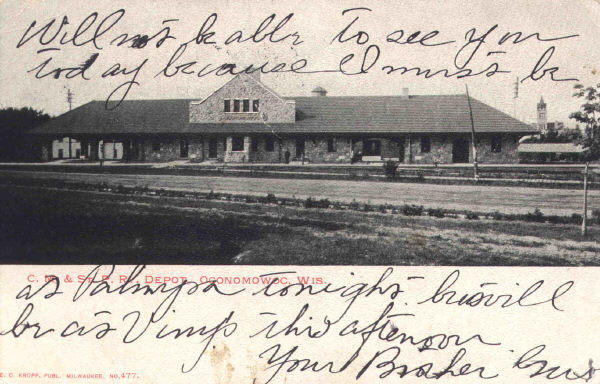 Will not be able to see you
today because I must be
C. M. & St. P. Ry. Depot, Oconomowoc, Wis.
at Palmyra tonight. but will
be at Vimys this afternoon
Your Brother Gus
E. C. KROPP, PUBL. MILWAUKEE. NO. 477.